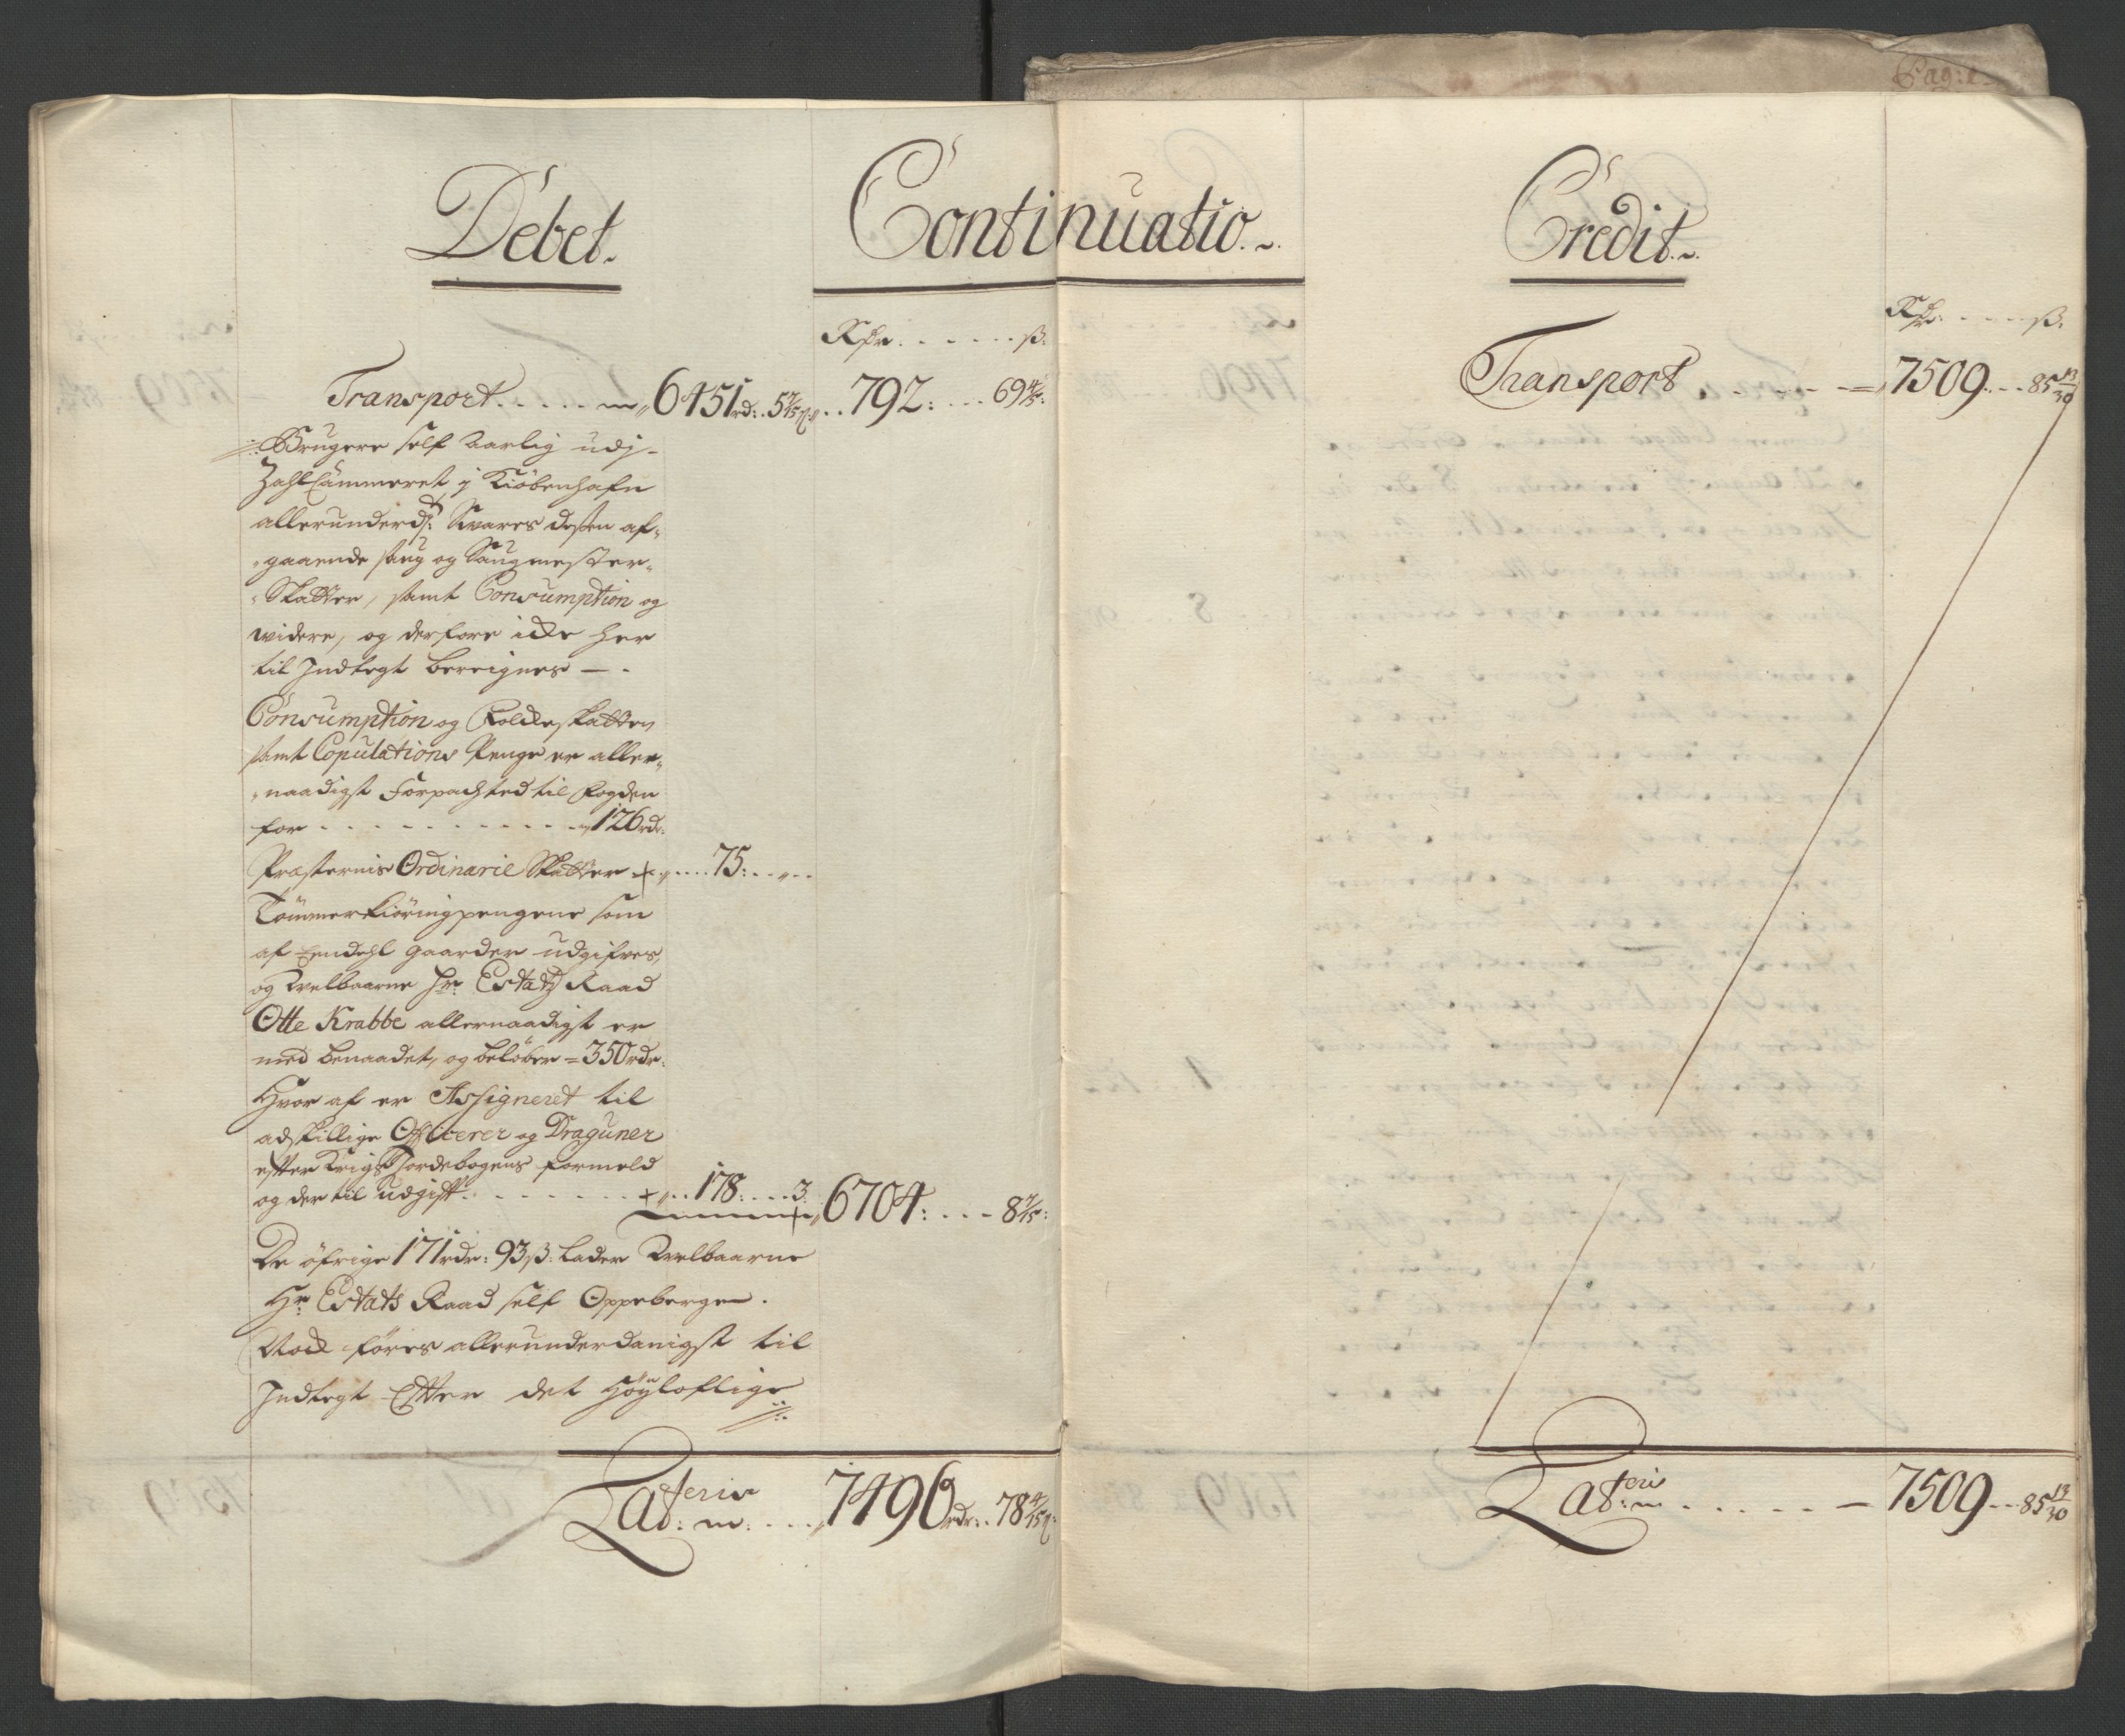 Pag: 1
Debet.
Continuatio.
Credit.
Rdr. . . . . . ß:
Transport . . . . . 6451rd: 5 7/15 ß: . . 792: . . . 69 4/5:
Brugere self Aarlig udj
Zahlkammeret j Kiöbenhafn
allerunderd: Svares desen af-
gaaende saug og Saugmester-
Skatter, samt Consumption og
widere, og derfore icke her
til Indtegt bereignes —
Consumption og Folckeskatten
samt Copulations Penge er aller-
naadigst Forpachted til Fogden
for . . . . . . . . . . 126rdr:
Præsternis Ordinarie Skatter + . . . . 75: . . .
Tömmerkiöringpengene som
af Eendehl gaarder udgifves,
og Welbaarne Hr: Estatz Raad
Otte Krabbe allernaadigst er
med benaadet, og belöber = 350rdr:
Hvor af er Assigneret til
adskillige Officerer og Draguner
efter Krigs Jordebogens formeld
og der til udgift . . . . . . . + . . 178: . . . 3: 6704: . . . 8 7/15:
De öfrige 171rdr: 93ß: lader Welbaarne
Hr: Estats Raad self Oppeberge.
Noch föres allerunderdanigst til
Indtegt Efter det Höyloflige
Lateris . . . 7496rdr: . 78 4/15 ß:
Rdr: . . . . ß:
Transport . . . . . = 7509 . . . 85 13/30
Lateris . . . . . — 7509 . . . 85 13/30